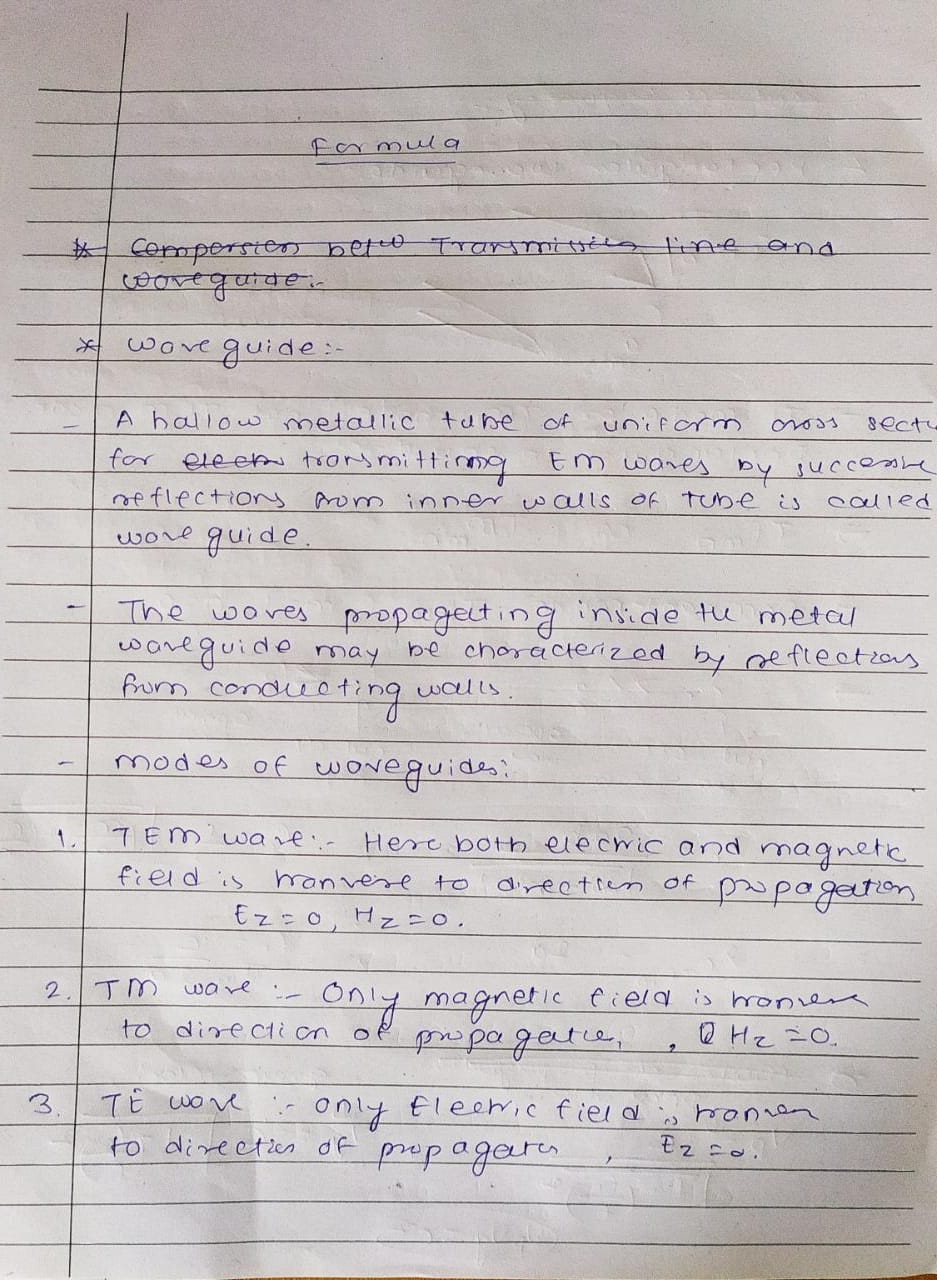 Formula
* Compersion betw Transmission line and
waveguide:-
* wave guide :-
- A hallow metallic tube of uniform cross secti
for elecm transmitting EM waves by successive
reflections from inner walls of tube is called
wave guide.
- The waves propagating inside the metal
waveguide may be characterized by reflections
from conducting walls.
- modes of waveguides:
1. TEM wave :- Here both electric and magnetic
field is tranvere to direction of propagation
Ez = 0, Hz = 0.
2. TM wave :- Only magnetic field is
to direction of , Hz = 0.
3. TE wave :- only Electric field is
to direction of , Ez = 0.